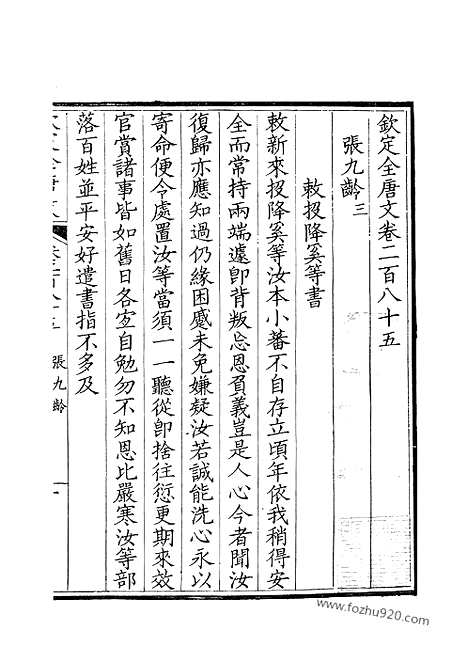 欽定全唐文卷二百八十五
張九齡三
敕投降奚等書
敕新來投降奚等汝本小蕃不自存立頃年依我稍得安
全而常持兩端遽卽背叛忘恩負義豈是人心今者聞汝
復歸亦應知過仍緣困蹙未免嫌疑汝若誠能洗心永以
寄命便令處置汝等當須一一聽從卽捨往愆更期來效
官賞諸事皆如舊日各宜自勉勿不知恩比嚴寒汝等部
落百姓並平安好遣書指不多及
張九齡
www.fozhu920.com